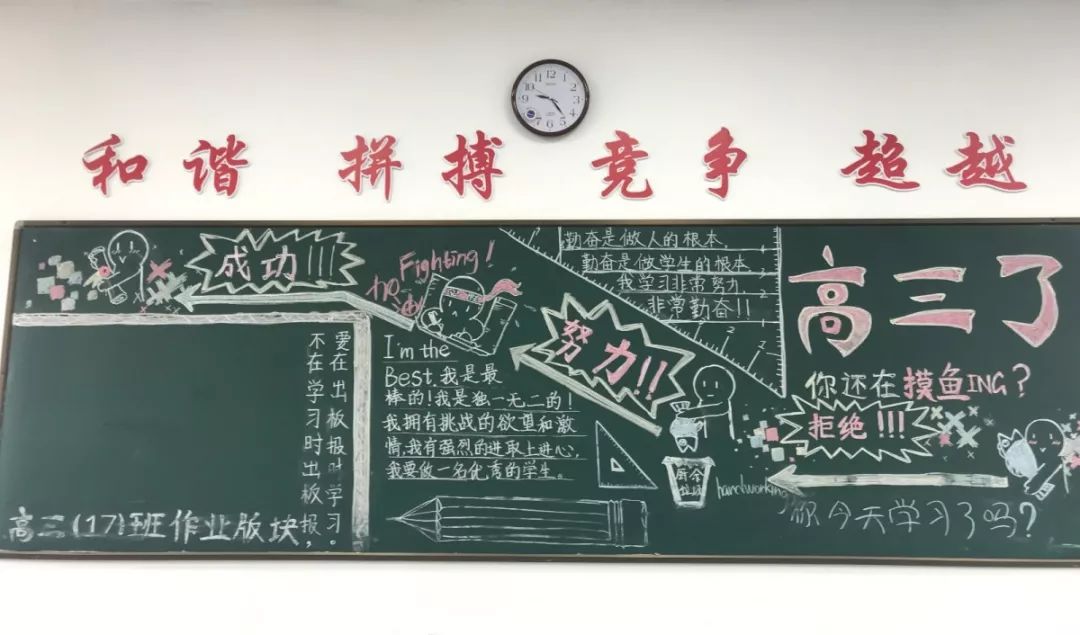 和谐 拼搏 竞争 超越
成功!!!
Fighting!
勤奋是做人的根本,
勤奋是做学生的根本
我学习非常努力,
非常勤奋!!
高三了
努力!!
I'm the
Best.我是最
棒的!我是独一无二的!
我拥有挑战的欲望和激
情,我有强烈的进取上进心,
我要做一名优秀的学生。
不在学习时出板报，
要在出板报时学习。
高三(17)班作业版块
你还在摸鱼ING?
拒绝!!!
厨余
垃圾
你今天学习了吗?